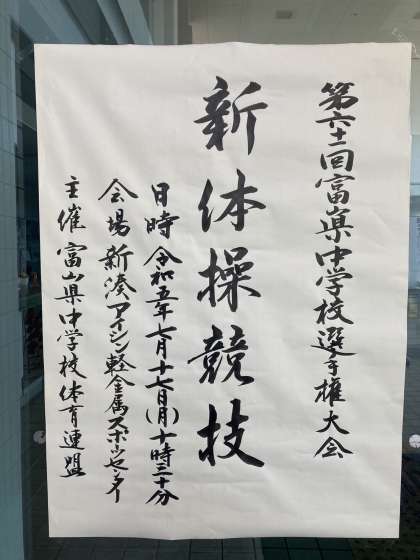 第六十二回富山県中学校選手権大会
新体操競技
日時 令和五年七月十七日(月)十時三十分
会場 新湊アイシン軽金属スポーツセンター
主催 富山県中学校体育連盟